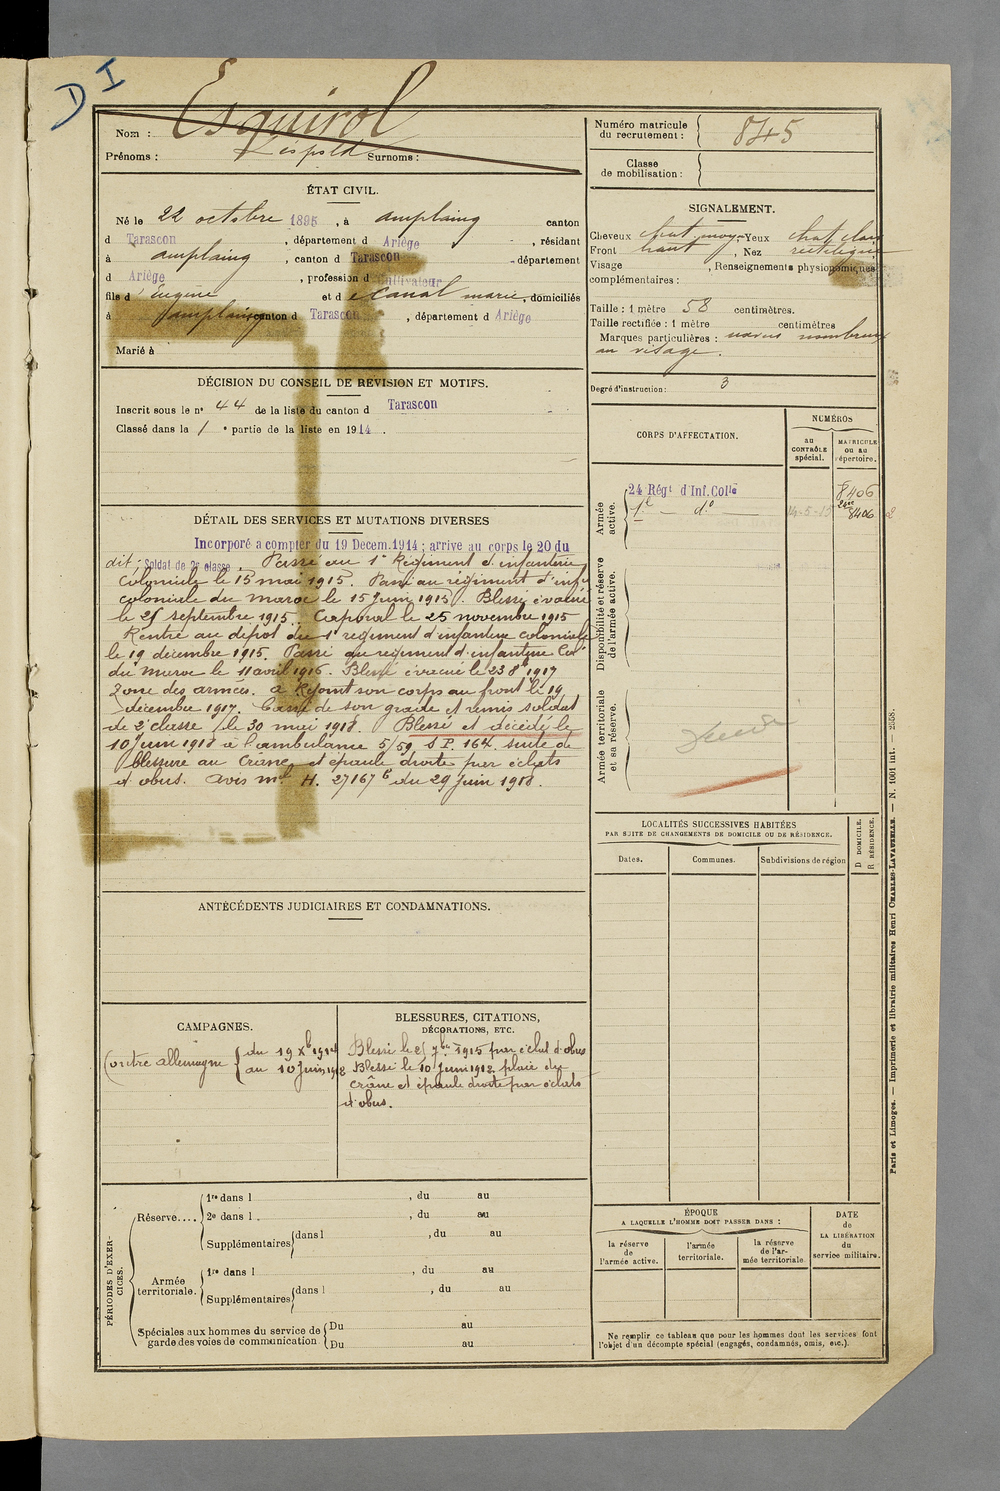 D I
Nom : Esquirol
Prénoms : Léopold Surnoms :
Numéro matricule
du recrutement : 845
Classe
de mobilisation :
ÉTAT CIVIL.
Né le 22 octobre 1895, à amplaing canton
d Tarascon, département d Ariège, résidant
à amplaing, canton d Tarascon département
d Ariège, profession d Cultivateur
fils d' Eugène et d e Canal marie, domiciliés
à amplaing canton d Tarascon, département d Ariège
Marié à
SIGNALEMENT.
Cheveux chat moy. Yeux chat clair
Front haut, Nez rectiligne
Visage , Renseignements physionomiques
complémentaires :
Taille : 1 mètre 58 centimètres.
Taille rectifiée : 1 mètre centimètres
Marques particulières : nævus nombreux
au visage.
Degré d'instruction : 3
DÉCISION DU CONSEIL DE REVISION ET MOTIFS.
Inscrit sous le n° 44 de la liste du canton d Tarascon
Classé dans la 1e partie de la liste en 1914.
DÉTAIL DES SERVICES ET MUTATIONS DIVERSES
Incorporé a compter du 19 Decem. 1914 ; arrive au corps le 20 du
dit ; Soldat de 2e classe. Passé au 1e Régiment d'infanterie
Coloniale le 15 mai 1915. Passé au régiment d'infie
coloniale du maroc le 15 Juin 1915. Blessé évacué
le 25 septembre 1915. Caporal le 25 novembre 1915
Rentré au dépôt du 1e régiment d'infanterie coloniale
le 19 décembre 1915. Passé au régiment d'infanterie Cole
du Maroc le 11 avril 1916. Blessé évacué le 23 8bre 1917
Zone des armées. a Rejoint son corps au front le 19
décembre 1917. Cassé de son grade et remis soldat
de 2e classe le 30 mai 1918. Blessé et décédé le
10 Juin 1918 à l'ambulance 5/59 S.P. 164. suite de
blessure au Crâne et épaule droite par éclats
d'obus. avis mel H. 27167 du 29 Juin 1918.
CORPS D'AFFECTATION.
NUMÉROS
AU
CONTRÔLE
spécial.
MATRICULE
ou au
répertoire.
Armée
active.
24 Régt d'Inf. Colle 8406
1e - do - 14-5-15 8406
Disponibilité et réserve
de l'armée active.
Armée territoriale
et sa réserve.
LOCALITÉS SUCCESSIVES HABITÉES
PAR SUITE DE CHANGEMENTS DE DOMICILE OU DE RÉSIDENCE.
Dates. Communes. Subdivisions de région
D DOMICILE.
R RÉSIDENCE.
ANTÉCÉDENTS JUDICIAIRES ET CONDAMNATIONS.
CAMPAGNES.
Contre allemagne
du 19 Xbre 1914
au 10 Juin 1918
BLESSURES, CITATIONS,
DÉCORATIONS, ETC.
Blessé le 25 7bre 1915 par éclat d'obus
Blessé le 10 Juin 1918 plaie du
crâne et épaule droite par éclats
d'obus.
PÉRIODES D'EXER-
CICES.
Réserve....
1re dans l , du au
2e dans l , du au
Supplémentaires dans l , du au
Armée
territoriale.
1re dans l , du au
Supplémentaires dans l , du au
Spéciales aux hommes du service de
garde des voies de communication
Du au
Du au
ÉPOQUE
A LAQUELLE L'HOMME DOIT PASSER DANS :
la réserve
de
l'armée active.
l'armée
territoriale.
la réserve
de l'ar-
mée territoriale
DATE
de
LA LIBÉRATION
du
service militaire.
Ne remplir ce tableau que pour les hommes dont les services font
l'objet d'un décompte spécial (engagés, condamnés, omis, etc.).
Paris et Limoges. — Imprimerie et librairie militaires Henri CHARLES-LAVAUZELLE. — N. 1001 int. — 2558.